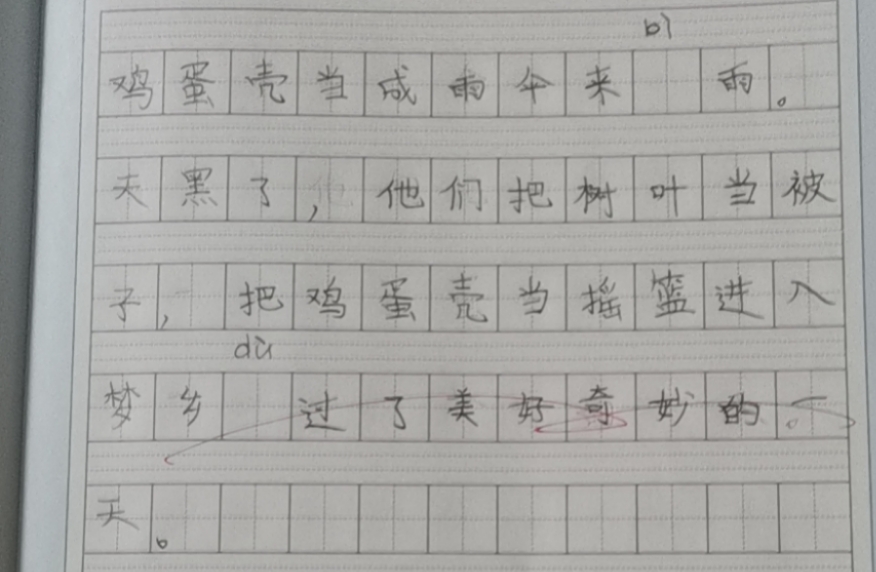 bì
鸡蛋壳当成雨伞来 雨。
天黑了,他们把树叶当被
子,把鸡蛋壳当摇篮进入
dù
梦乡 过了美好奇妙的一
天。